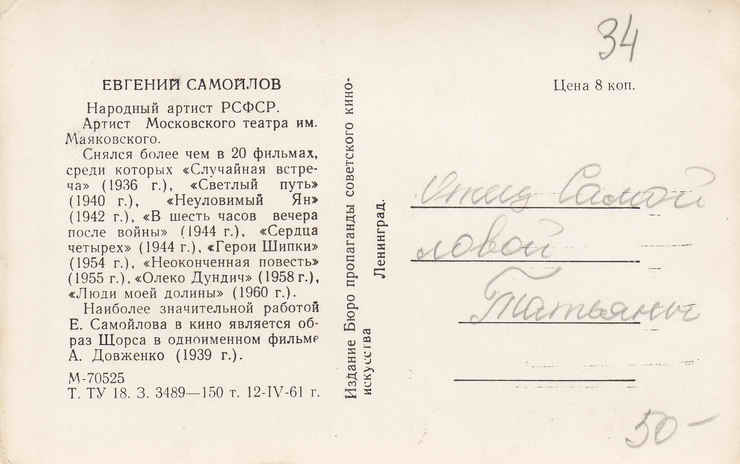 ЕВГЕНИЙ САМОЙЛОВ
Народный артист РСФСР.
Артист Московского театра им.
Маяковского.
Снялся более чем в 20 фильмах,
среди которых «Случайная встре-
ча» (1936 г.), «Светлый путь»
(1940 г.), «Неуловимый Ян»
(1942 г.), «В шесть часов вечера
после войны» (1944 г.), «Сердца
четырех» (1944 г.), «Герои Шипки»
(1954 г.), «Неоконченная повесть»
(1955 г.), «Олеко Дундич» (1958 г.),
«Люди моей долины» (1960 г.).
Наиболее значительной работой
Е. Самойлова в кино является об-
раз Щорса в одноименном фильме
А. Довженко (1939 г.).
М-70525
Т. ТУ 18. З. 3489—150 т. 12-IV-61 г.
Издание Бюро пропаганды советского кино-
искусства
Ленинград.
34
Цена 8 коп.
Отец Самой
ловой
Татьяны
50-